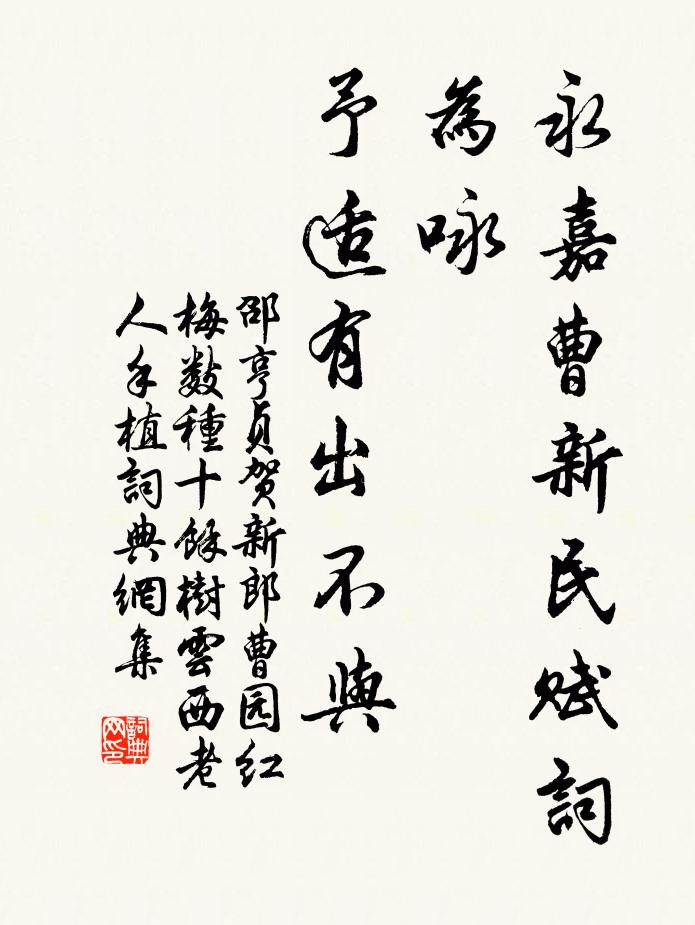 永嘉曹新民赋詞
為咏
予适有出不與
邵亨贞贺新郎曹园红
梅数種十餘樹雲西老
人手植詞典網集
詞典网印